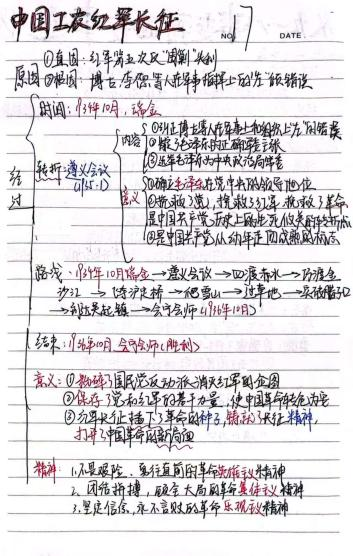 中国工农红军长征
NO. 17 DATE.
原因 ①直因：红军第五次反"围剿"失利
②根因：博古、李德等人在军事指挥上的"左"倾错误
经过
时间：1934年10月，瑞金
转折：遵义会议
(1935.1)
内容
①纠正博古等人在军事上和组织上"左"的错误
②肯定了毛泽东的正确军事主张
③选毛泽东为中央政治局常委
意义
①确立毛泽东在党中央的领导地位
②挽救了党，挽救了红军，挽救了革命，
是中国共产党历史上的生死攸关的转折点
③是中国共产党从幼年走向成熟的标志
路线：1934年10月瑞金→遵义会议→四渡赤水→巧渡金
沙江→飞夺泸定桥→爬雪山→过草地→突破腊子口
→到达吴起镇→会宁会师(1936年10月)
结束：1936年10月，会宁会师(胜利)
意义：①粉碎了国民党反动派消灭红军的企图
②保存了党和红军的基干力量，使中国革命转危为安
③红军长征播下了革命的种子，铸就了长征精神，
打开了中国革命的新局面
精神：1、不畏艰险、勇往直前的革命英雄主义精神
2、团结拼搏，顾全大局的革命集体主义精神
3、坚定信念，永不言败的革命乐观主义精神